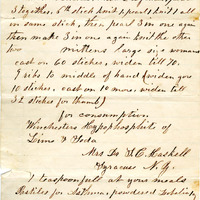 3 together. 6th stick knit 1 pearl 1 knit 1 all
in same stick, then pearl 3 in one again
then make 3 in one again knit the other
two mittens large size womans
cast on 60 stiches, widen till 70.
9 ribs to middle of hand (widen goes
10 stiches, cast on 10 more, widen till
32 stiches for thumb)
for consumption.
Winchesters Hypophosphite of
Lime & Soda
Mrs Haskell
Syracuse N. Y.
1 teaspoonful at your meals
for Asthma, powdered